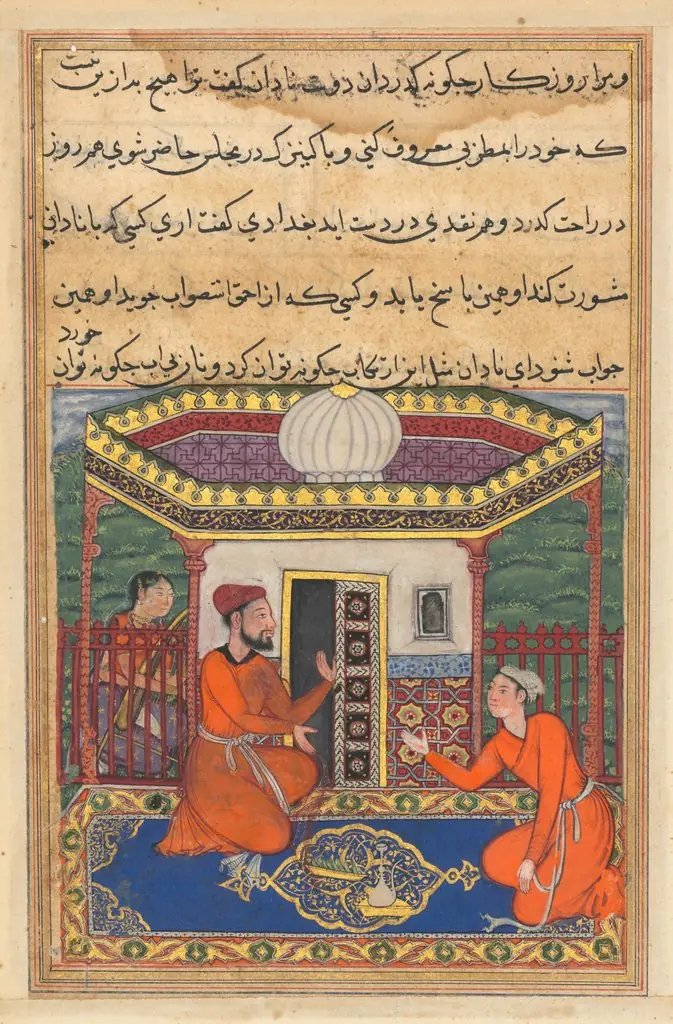 و مرا روزکار جکونه کدرد ان دوست نادان کفت ترا هیچ بد ازین نیست
که خود را بمطربی معروف کنی و با کنیزک در مجلس حاضر شوی هم روز
در راحت کدرد و هم نقدی در دست اید بغدادی کفت اری کسی که با نادان
مشورت کند او همین باسخ یابد و کسی که از احمق استصواب جوید او همین
جواب شنود ای نادان مثل این ارتکاب جکونه توان کرد و نان بی اب جکونه توان خورد